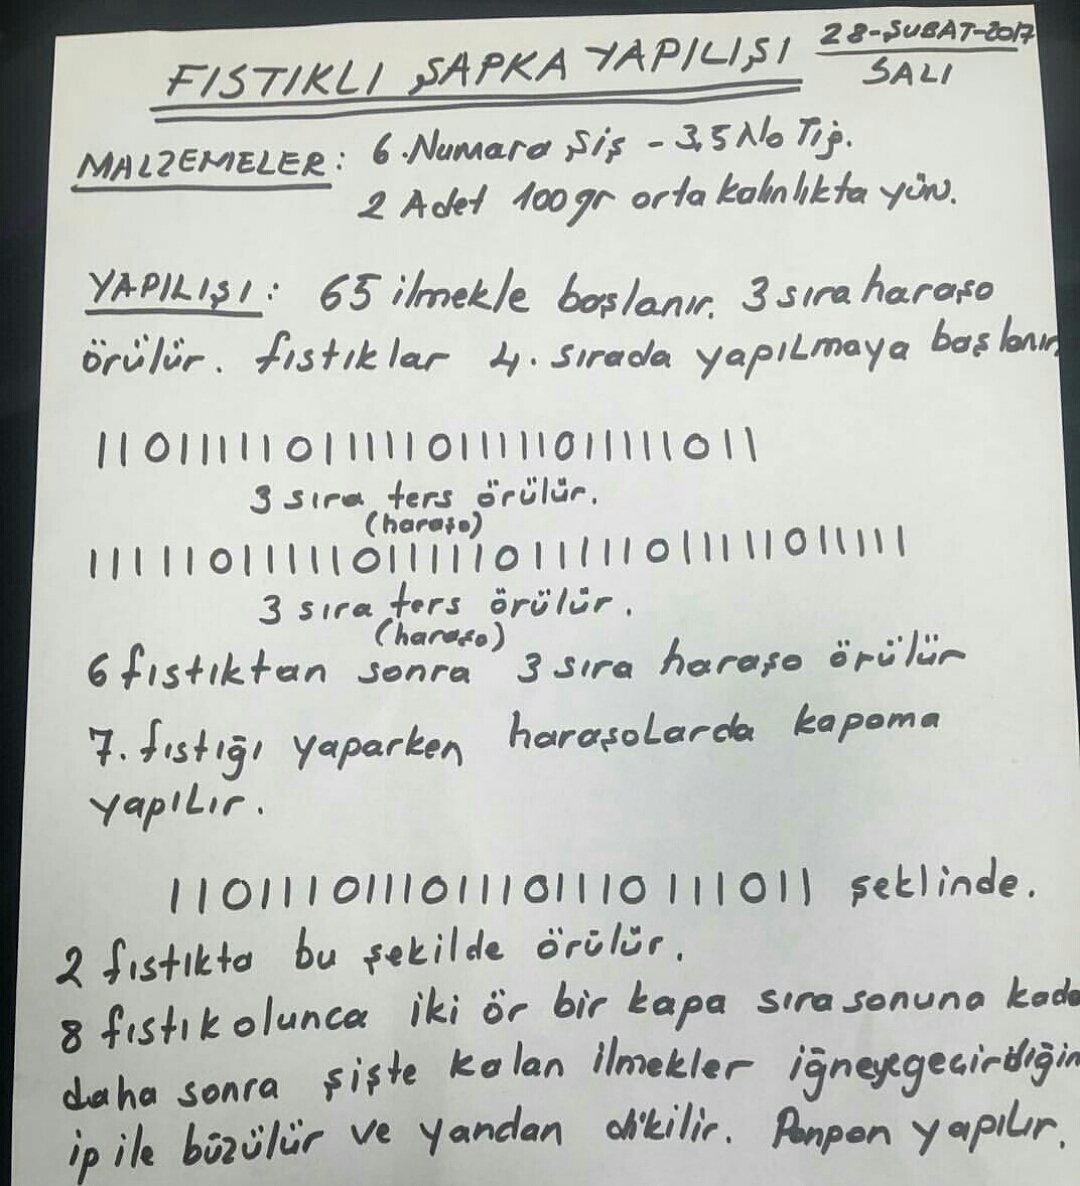 28-ŞUBAT-2017
FISTIKLI ŞAPKA YAPILIŞI
SALI
MALZEMELER: 6.Numara Şiş - 3,5 No Tığ.
2 Adet 100gr orta kalınlıkta yün.
YAPILIŞI: 65 ilmekle başlanır. 3 sıra haraşo
örülür. fıstıklar 4. sırada yapılmaya başlanır.
11011111011111011111011111011
3 sıra ters örülür.
(haraşo)
11111011111011111011111011111011111
3 sıra ters örülür.
(haraşo)
6 fıstıktan sonra 3 sıra haraşo örülür
7. fıstığı yaparken haraşolarda kapama
yapılır.
11011101110111011101111011 şeklinde.
2 fıstıkta bu şekilde örülür.
8 fıstık olunca iki ör bir kapa sıra sonuna kada
daha sonra şişte kalan ilmekler iğneye geçirdiğin
ip ile büzülür ve yandan dikilir. Ponpon yapılır.